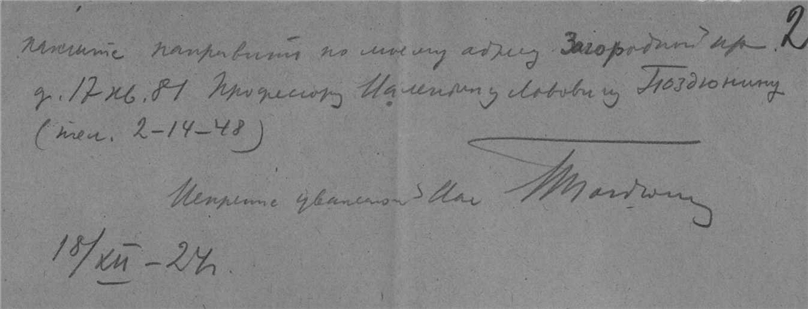 2
направить по моему адресу Загородный пр.
д. 17 кв. 81 Профессору Валентину Львовичу Поздюнину
(тел. 2-14-48)
Искренне уважающий Вас Поздюнин
18/XII – 24г.